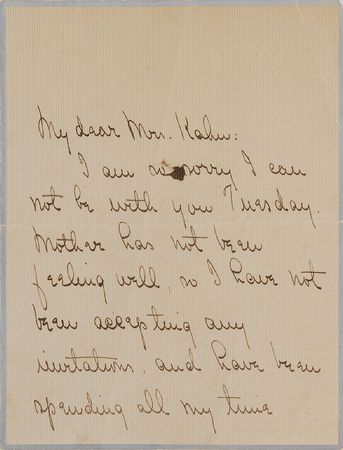 My dear Mrs. Kahn:
I am so sorry I can
not be with you Tuesday.
Mother has not been
feeling well, so I have not
been accepting any
invitations, and have been
spending all my time